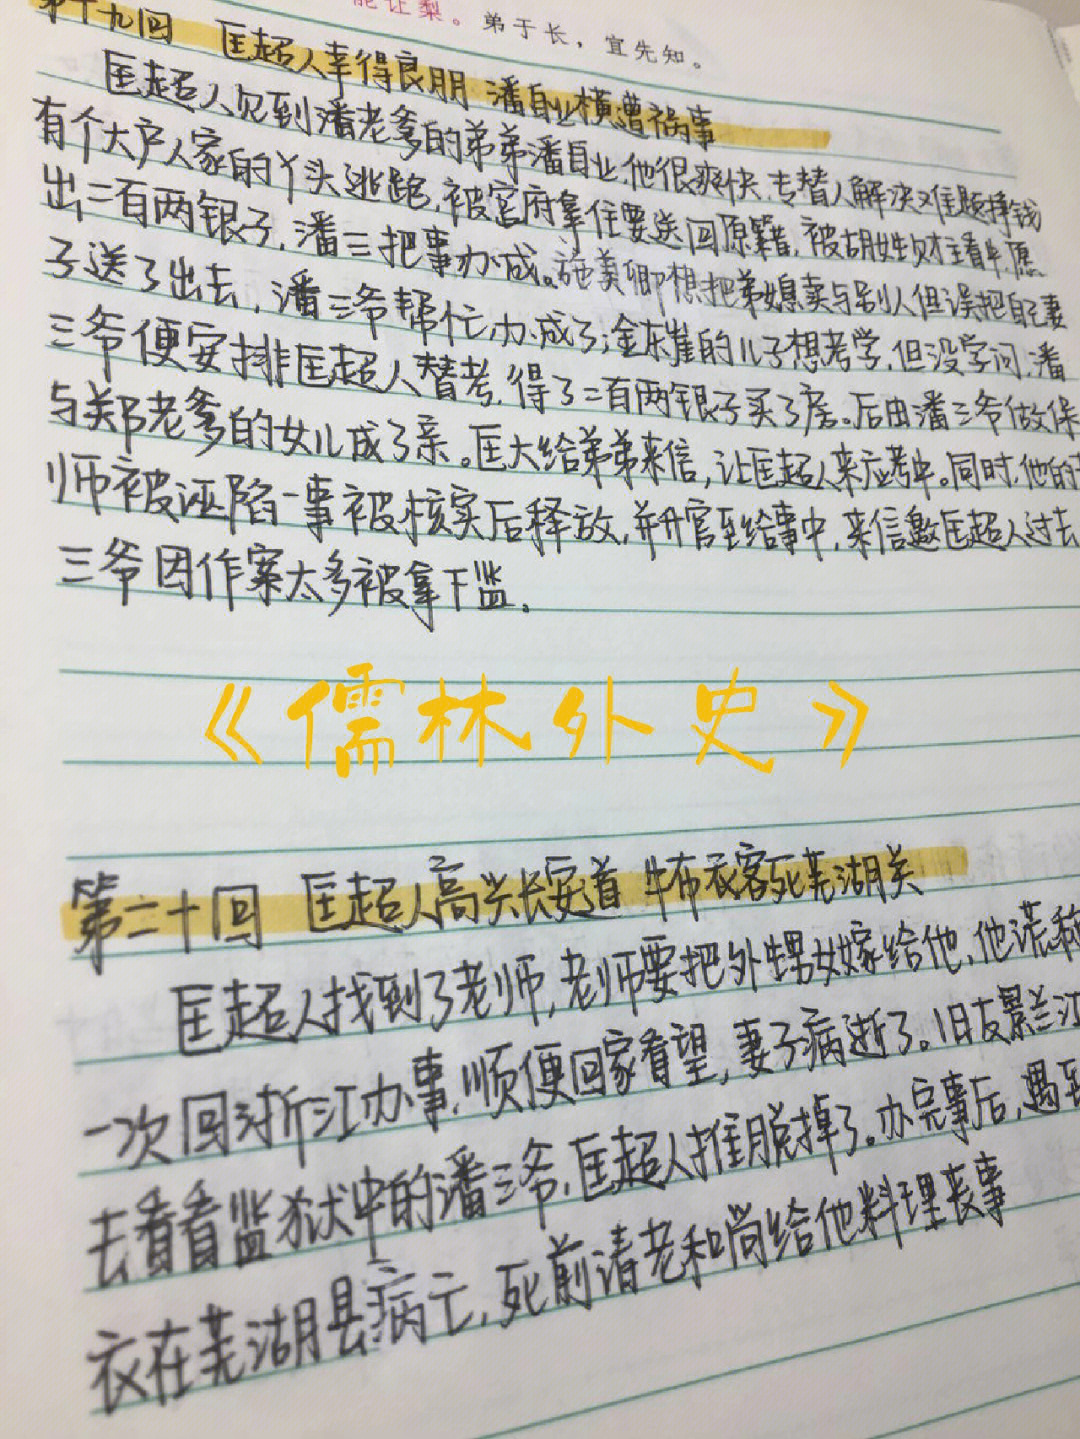 能让梨。弟于长，宜先知。
第十九回 匡超人幸得良朋 潘自业横遭祸事
匡超人见到潘老爹的弟弟潘自业,他很爽快,专替人解决难题挣钱
有个大户人家的丫头逃跑,被官府拿住要送回原籍,被胡姓财主看中,愿
出二百两银子,潘三把事办成。施美卿想把弟媳卖与别人但误把自己妻
子送了出去,潘三爷帮忙办成了;金东崖的儿子想考学,但没学问,潘
三爷便安排匡超人替考,得了二百两银子买了房。后由潘三爷做保
与郑老爹的女儿成了亲。匡大给弟弟来信,让匡超人来应考。同时,他的
师被诬陷一事被核实后释放,并升官至给事中,来信邀匡超人过去
三爷因作案太多被拿下监。
《儒林外史》
第二十回 匡超人高兴长安道 牛布衣客死芜湖关
匡超人找到了老师,老师要把外甥女嫁给他,他谎称
一次回浙江办事,顺便回家看望,妻子病逝了。旧友景兰江
去看看监狱中的潘三爷,匡超人推脱掉了。办完事后,遇到
衣在芜湖县病亡,死前请老和尚给他料理丧事